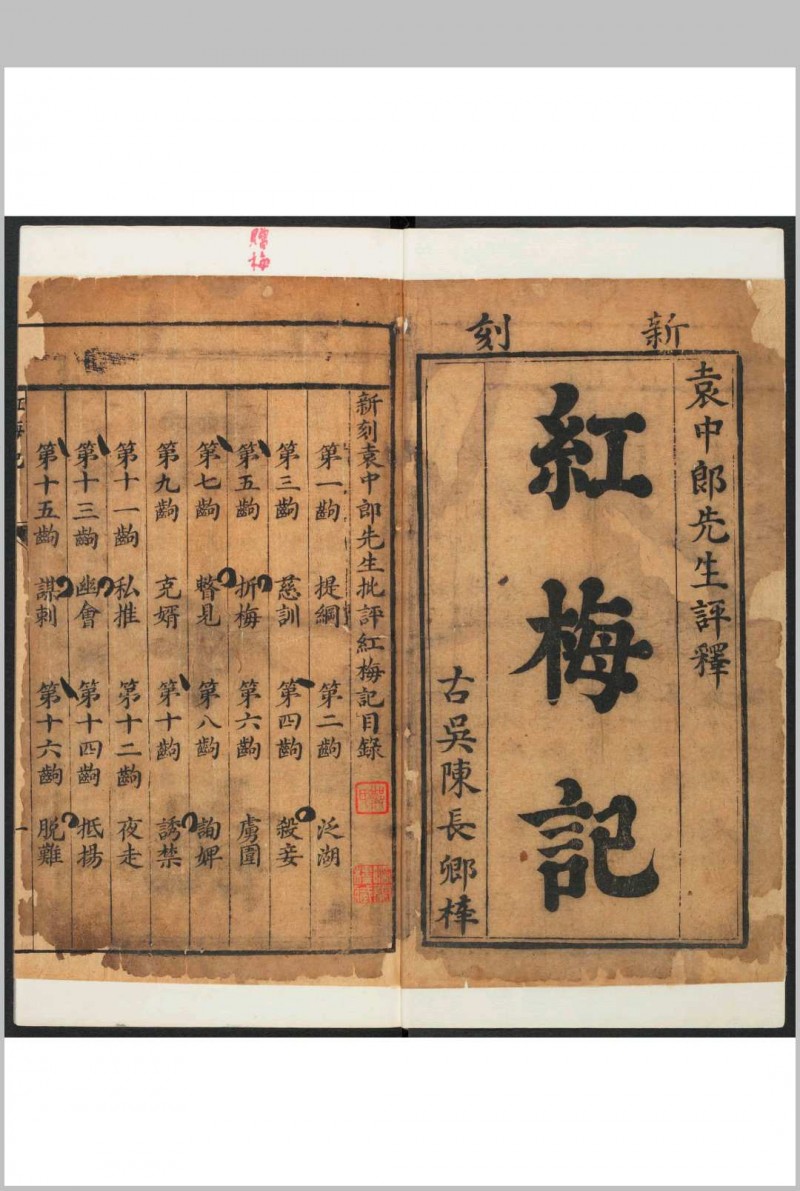 新刻
袁中郎先生評釋
紅梅記
古吳陳長卿梓
贈梅
新刻袁中郎先生批評紅梅記目錄
第一齣 提綱 第二齣 泛湖
第三齣 慈訓 第四齣 殺妾
第五齣 折梅 第六齣 虜圍
第七齣 瞥見 第八齣 詢婢
第九齣 克婿 第十齣 誘禁
第十一齣 私推 第十二齣 夜走
第十三齣 幽會 第十四齣 抵揚
第十五齣 謀刺 第十六齣 脫難
紅梅記
一